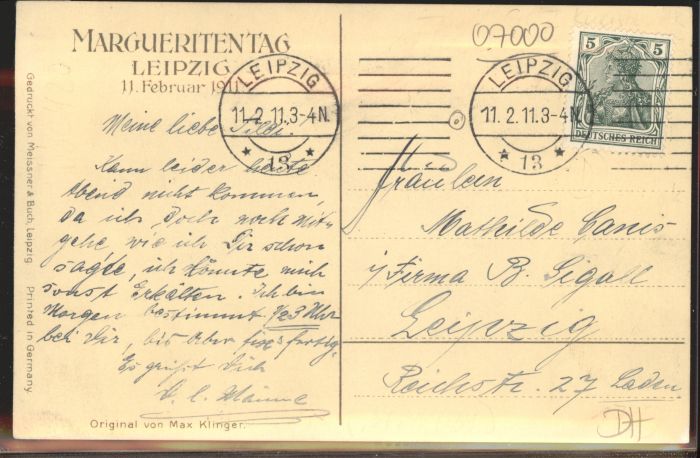 MARGUERITENTAG
LEIPZIG
11. Februar 1911
07000
LEIPZIG
11.2.11.3-4N.
* 13 *
LEIPZIG
11.2.11.3-4N.
* 13 *
5 5
DEUTSCHES REICH
Meine liebe
Kann leider heute
Abend nicht kommen,
da ich doch noch mit-
gehe, wie ich Dir schon
sagte, ich könnte mich
sonst Erkälten. Ich bin
Morgen bestimmt 1/2 3 Uhr
bei Dir, bis Aber fix fertig.
Es grüßt Dich
Fräulein
Mathilde Canis
i/Firma B. Sigall
Leipzig
Reichstr. 27 Laden
DH
Original von Max Klinger.
Gedruckt von Meissner & Buch, Leipzig
Printed in Germany